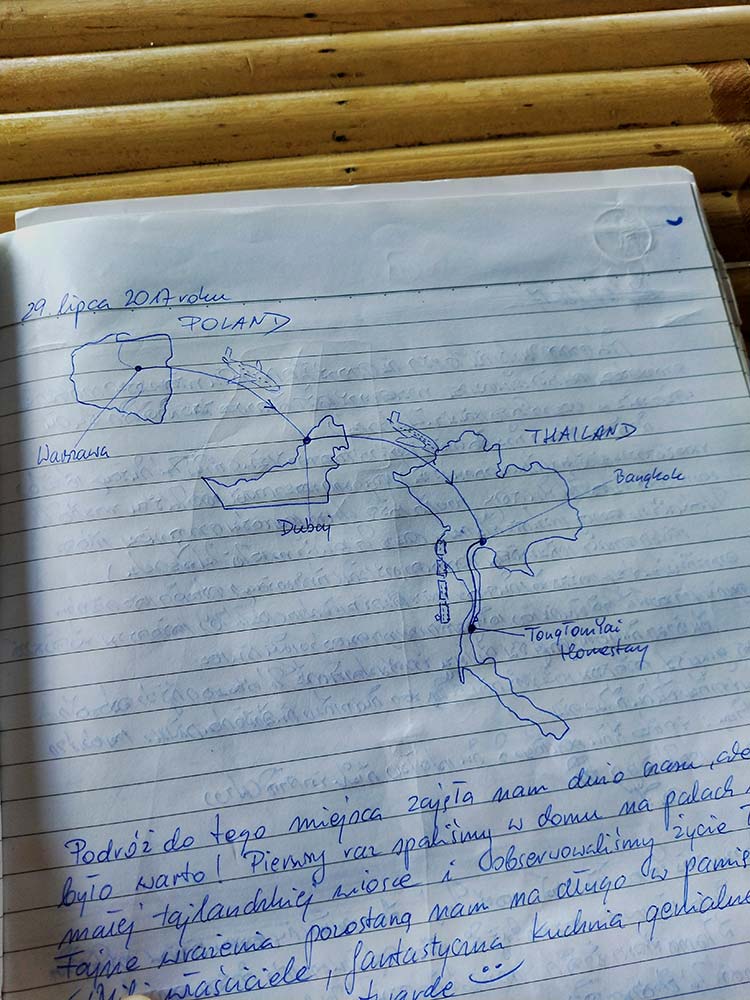 29. lipca 2017 roku
POLAND
Warszawa
Dubaj
THAILAND
Bangkok
TongTomYai
Homestay
Podróż do tego miejsca zajęła nam dużo czasu, ale
było warto! Pierwszy raz spaliśmy w domu na palach
małej tajlandzkiej wiosce i obserwowaliśmy życie
Fajne wrażenia pozostaną nam na długo w pamię
właściciele, fantastyczna kuchnia, genialne
twarde